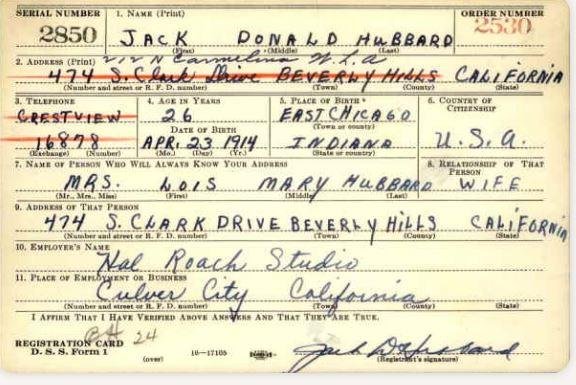 SERIAL NUMBER 1. NAME (Print) ORDER NUMBER
2850 JACK DONALD HUBBARD 2530
(First) (Middle) (Last)
2. ADDRESS (Print) N Carmelina W. L.A
474 S. Clark Drive BEVERLY HILLS CALIFORNIA
(Number and street or R. F. D. number) (Town) (County) (State)
3. TELEPHONE 4. AGE IN YEARS 5. PLACE OF BIRTH 6. COUNTRY OF CITIZENSHIP
CRESTVIEW 26 EAST CHICAGO
DATE OF BIRTH (Town or county)
16878 APR. 23 1914 INDIANA U.S.A.
(Exchange) (Number) (Mo.) (Day) (Yr.) (State or country)
7. NAME OF PERSON WHO WILL ALWAYS KNOW YOUR ADDRESS 8. RELATIONSHIP OF THAT PERSON
MRS. LOIS MARY HUBBARD WIFE
(Mr., Mrs., Miss) (First) (Middle) (Last)
9. ADDRESS OF THAT PERSON
474 S. CLARK DRIVE BEVERLY HILLS CALIFORNIA
(Number and street or R. F. D. number) (Town) (County) (State)
10. EMPLOYER'S NAME
Hal Roach Studio
11. PLACE OF EMPLOYMENT OR BUSINESS
Culver City California
(Number and street or R. F. D. number) (Town) (County) (State)
I AFFIRM THAT I HAVE VERIFIED ABOVE ANSWERS AND THAT THEY ARE TRUE.
24
REGISTRATION CARD
D. S. S. Form 1 (over) 16—17105 Jack D Hubbard
(Registrant's signature)